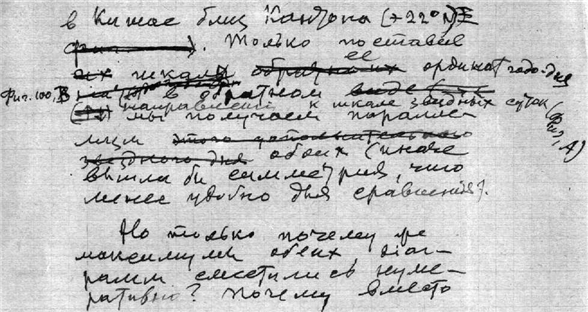 в Китае близ Кантона (+22° N)
). Только поставив
их шкалы ее ординат годо-дня
Фиг. 100, В в обратном виде
направлении к шкале звездных суток
(Фиг, А)
мы получаем паралле-
лизм этого дополнительного
звездного дня обоих (иначе
вышла бы симметрия, что
менее удобно для сравнения).
Но только почему же
максимумы обеих диаг-
рамм сместились нуме-
ративно? Почему вместо